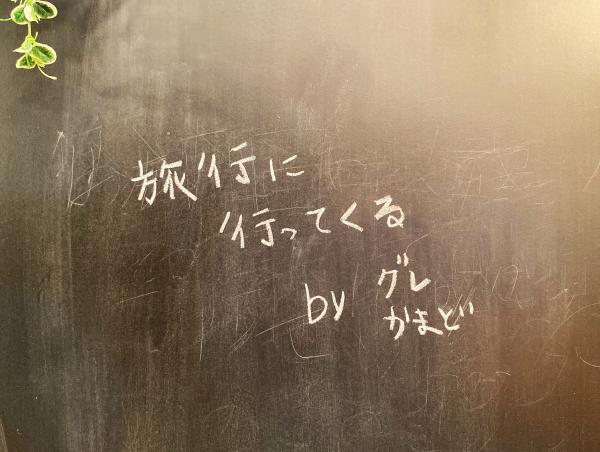 旅行に
行ってくる
by グレ
かまど